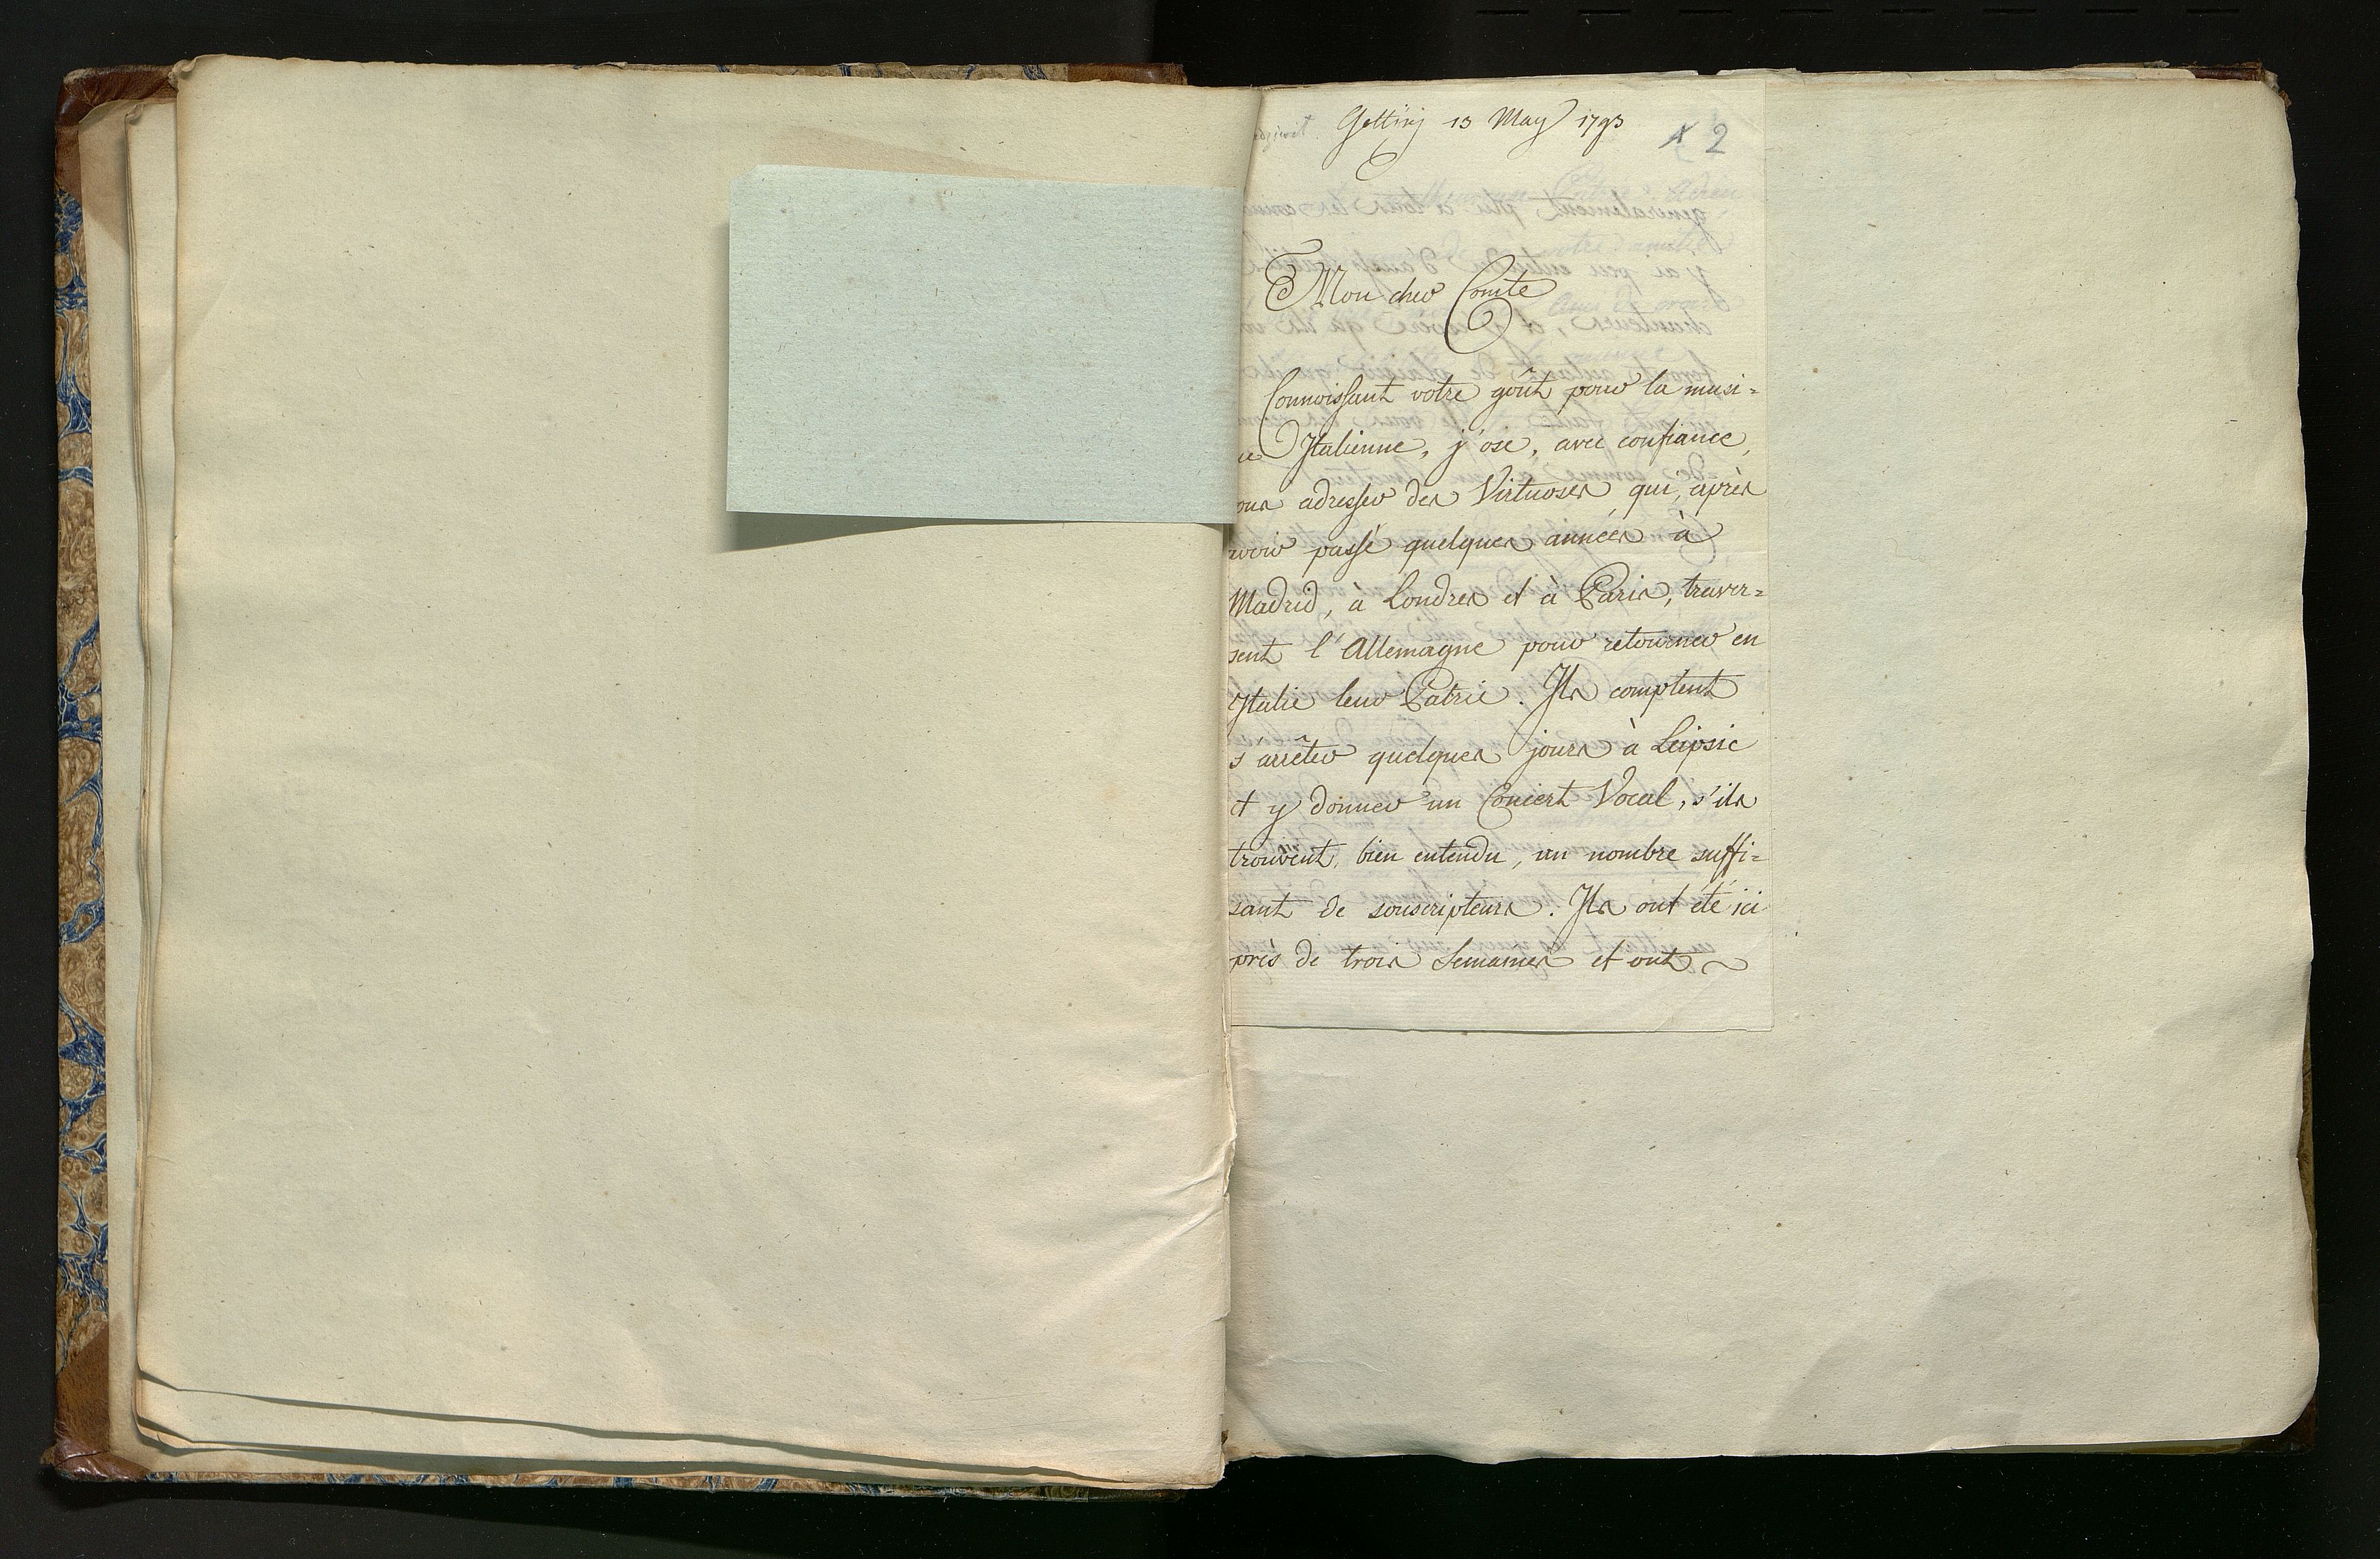 Gotting 13 May 1793
2
Mon cher Comte
Connoissant votre goût pour la musi=
ue Italienne, j'ose, avec confiance,
ous adresser des Virtuoses qui, après
avoir passé quelques années à
Madrid, à Londres et à Paris, traver=
sent l'Allemagne pour retourner en
Italie leur Patrie. Ils comptent
s'arrêter quelques jours à Leipsic
et y donner un Concert Vocal, s'ils
trouvent, bien entendu, un nombre suffi=
sant de souscripteurs. Ils ont été ici
près de trois Semaines et ont